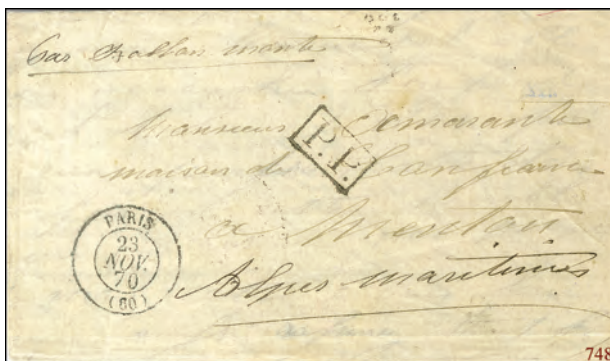 Par Ballon monté
Monsieur
P.P.
maison
a Menton
Alpes maritimes
PARIS
23
NOV.
70
(60)
748